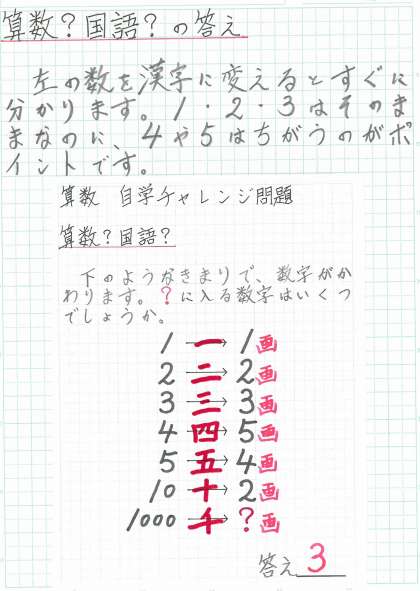 算数?国語?の答え
左の数を漢字に変えるとすぐに
分かります。1・2・3はそのま
まなのに、4や5はちがうのがポ
イントです。
算数 自学チャレンジ問題
算数?国語?
下のようなきまりで、数字がか
わります。?に入る数字はいくつ
でしょうか。
1 一→ 1画
2 二→ 2画
3 三→ 3画
4 四→ 5画
5 五→ 4画
10 十→ 2画
1000 千→ ?画
答え 3